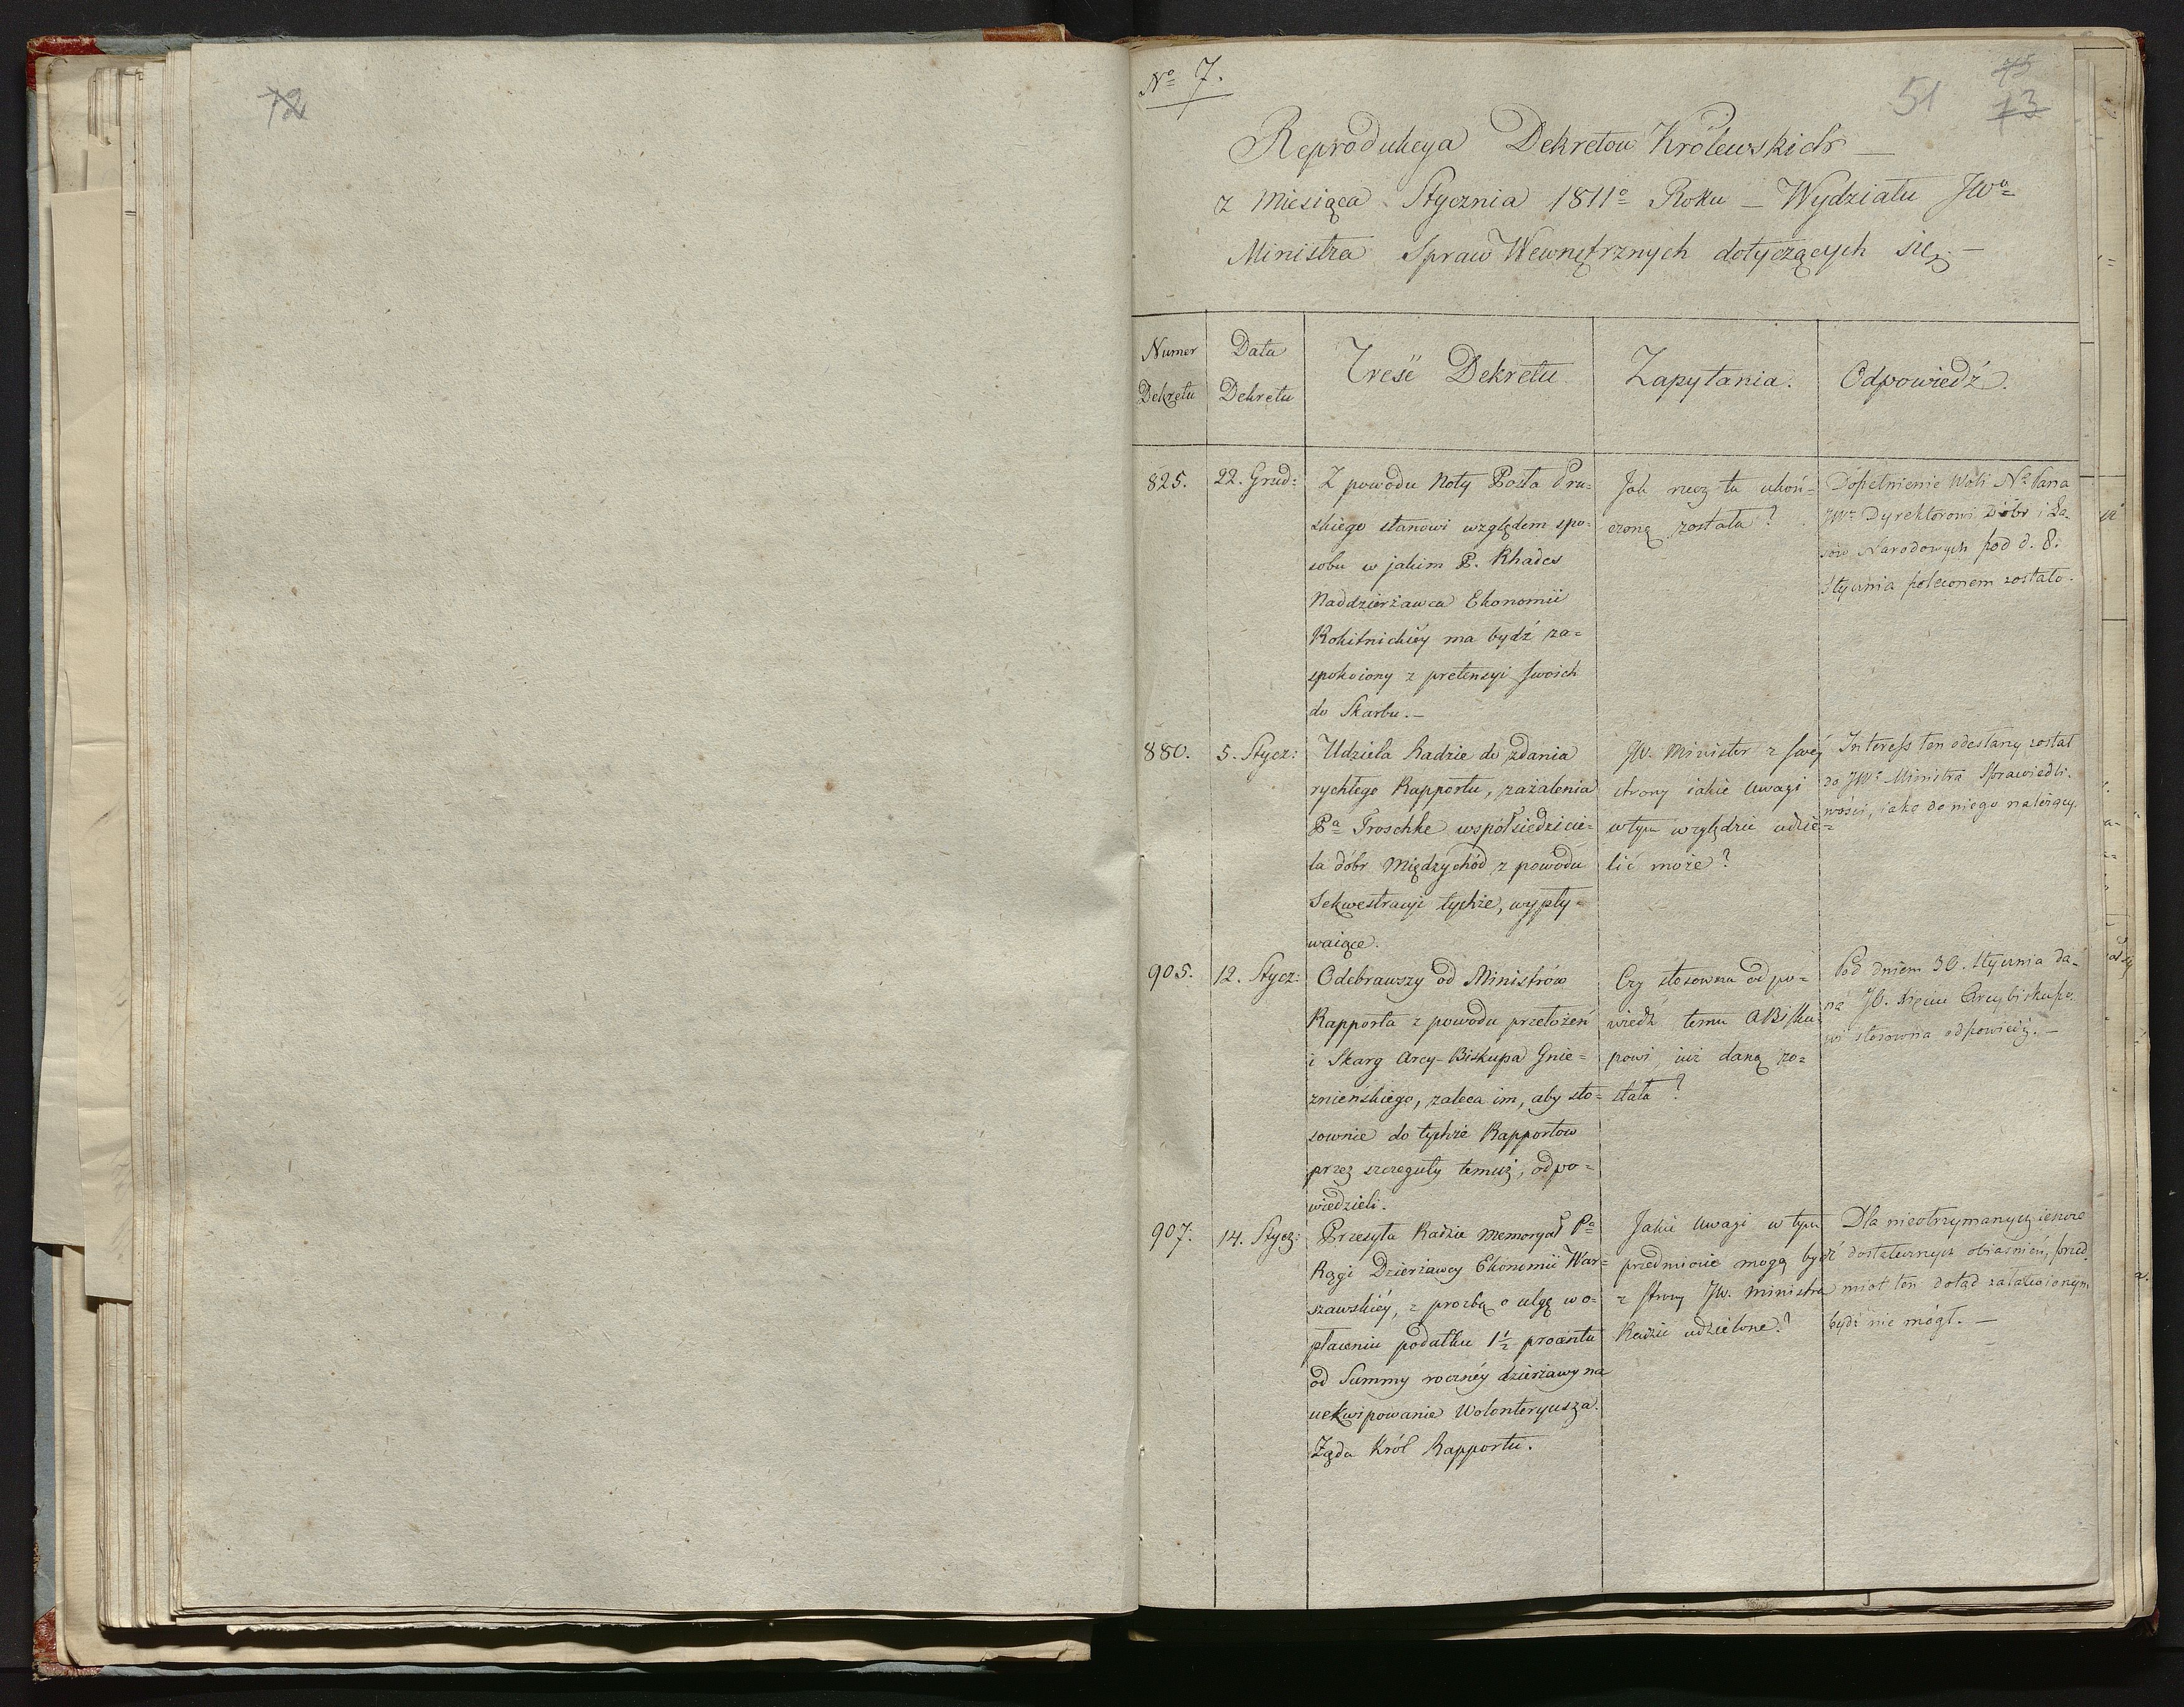 72
No 7.
51
75
73
Reprodukcya Dekretow Królewskich —
z Miesiąca Stycznia 1811o Roku — Wydziału JWo
Ministra Spraw Wewnętrznych dotyczących się. —
Numer
Dekretu
Data
Dekretu
Treść Dekretu
Zapytania.
Odpowiedź.
825.
22. Grud:
Z powodu Noty Posła Pru=
skiego stanowi względem spo=
sobu w jakim P. Rhades
Naddzierżawca Ekonomii
Rokitnickiéy ma bydź za=
spokoiony z pretensyi swoich
do Skarbu. —
Jak rzecz ta ukoń=
czoną została?
Dopełnienie Woli No Pana
JWo Dyrektorowi Dóbr i La-
sów Narodowych pod d. 8.
Stycznia poleconem zostało.
880.
5. Stycz:
Udziela Radzie do zdania
rychłego Rapportu, zażalenia
Pa Troschke współsiedzicie=
la dóbr Międzychód z powodu
Sekwestracyi tychże, wypły=
waiące.
JW. Minister z swéj
strony iakie uwagi
w tym względzie udzie=
lić może?
Interess ten odesłany został
do JWo Ministra Sprawiedli-
wości, jako do niego należący.
905.
12. Stycz:
Odebrawszy od Ministrów
Rapporta z powodu przełożeń
i Skarg Arcy-Biskupa Gnie=
znieńskiego, zaleca im, aby sto=
sownie do tychże Rapportow
przez szczeguły temuż, odpo=
wiedzieli.
Czy stosowna odpo=
wiedź temu ABisku=
powi iuż daną zo=
stała?
Pod dniem 30. Stycznia da-
na JO. Xięciu Arcybiskupo-
wi stosowna odpowiedź. —
907.
14. Stycz:
Przesyła Radzie memoryał Pa
Rągi Dzierżawcy Ekonomii War=
szawskiéy, z prozbą o ulgę w o=
płaceniu podatku 1½ procentu
od Summy rocznéy dzierżawy na
uekwipowanie Wolonteryusza.
Żąda Król Rapportu.
Jakie uwagi w tym
przedmiocie mogą bydź
z strony JW. Ministra
Radzie udzielone?
Dla nieotrzymanych ieszcze
dostatecznych obiaśnień, przed
miot ten dotąd załatwionym
bydź nie mógł. —